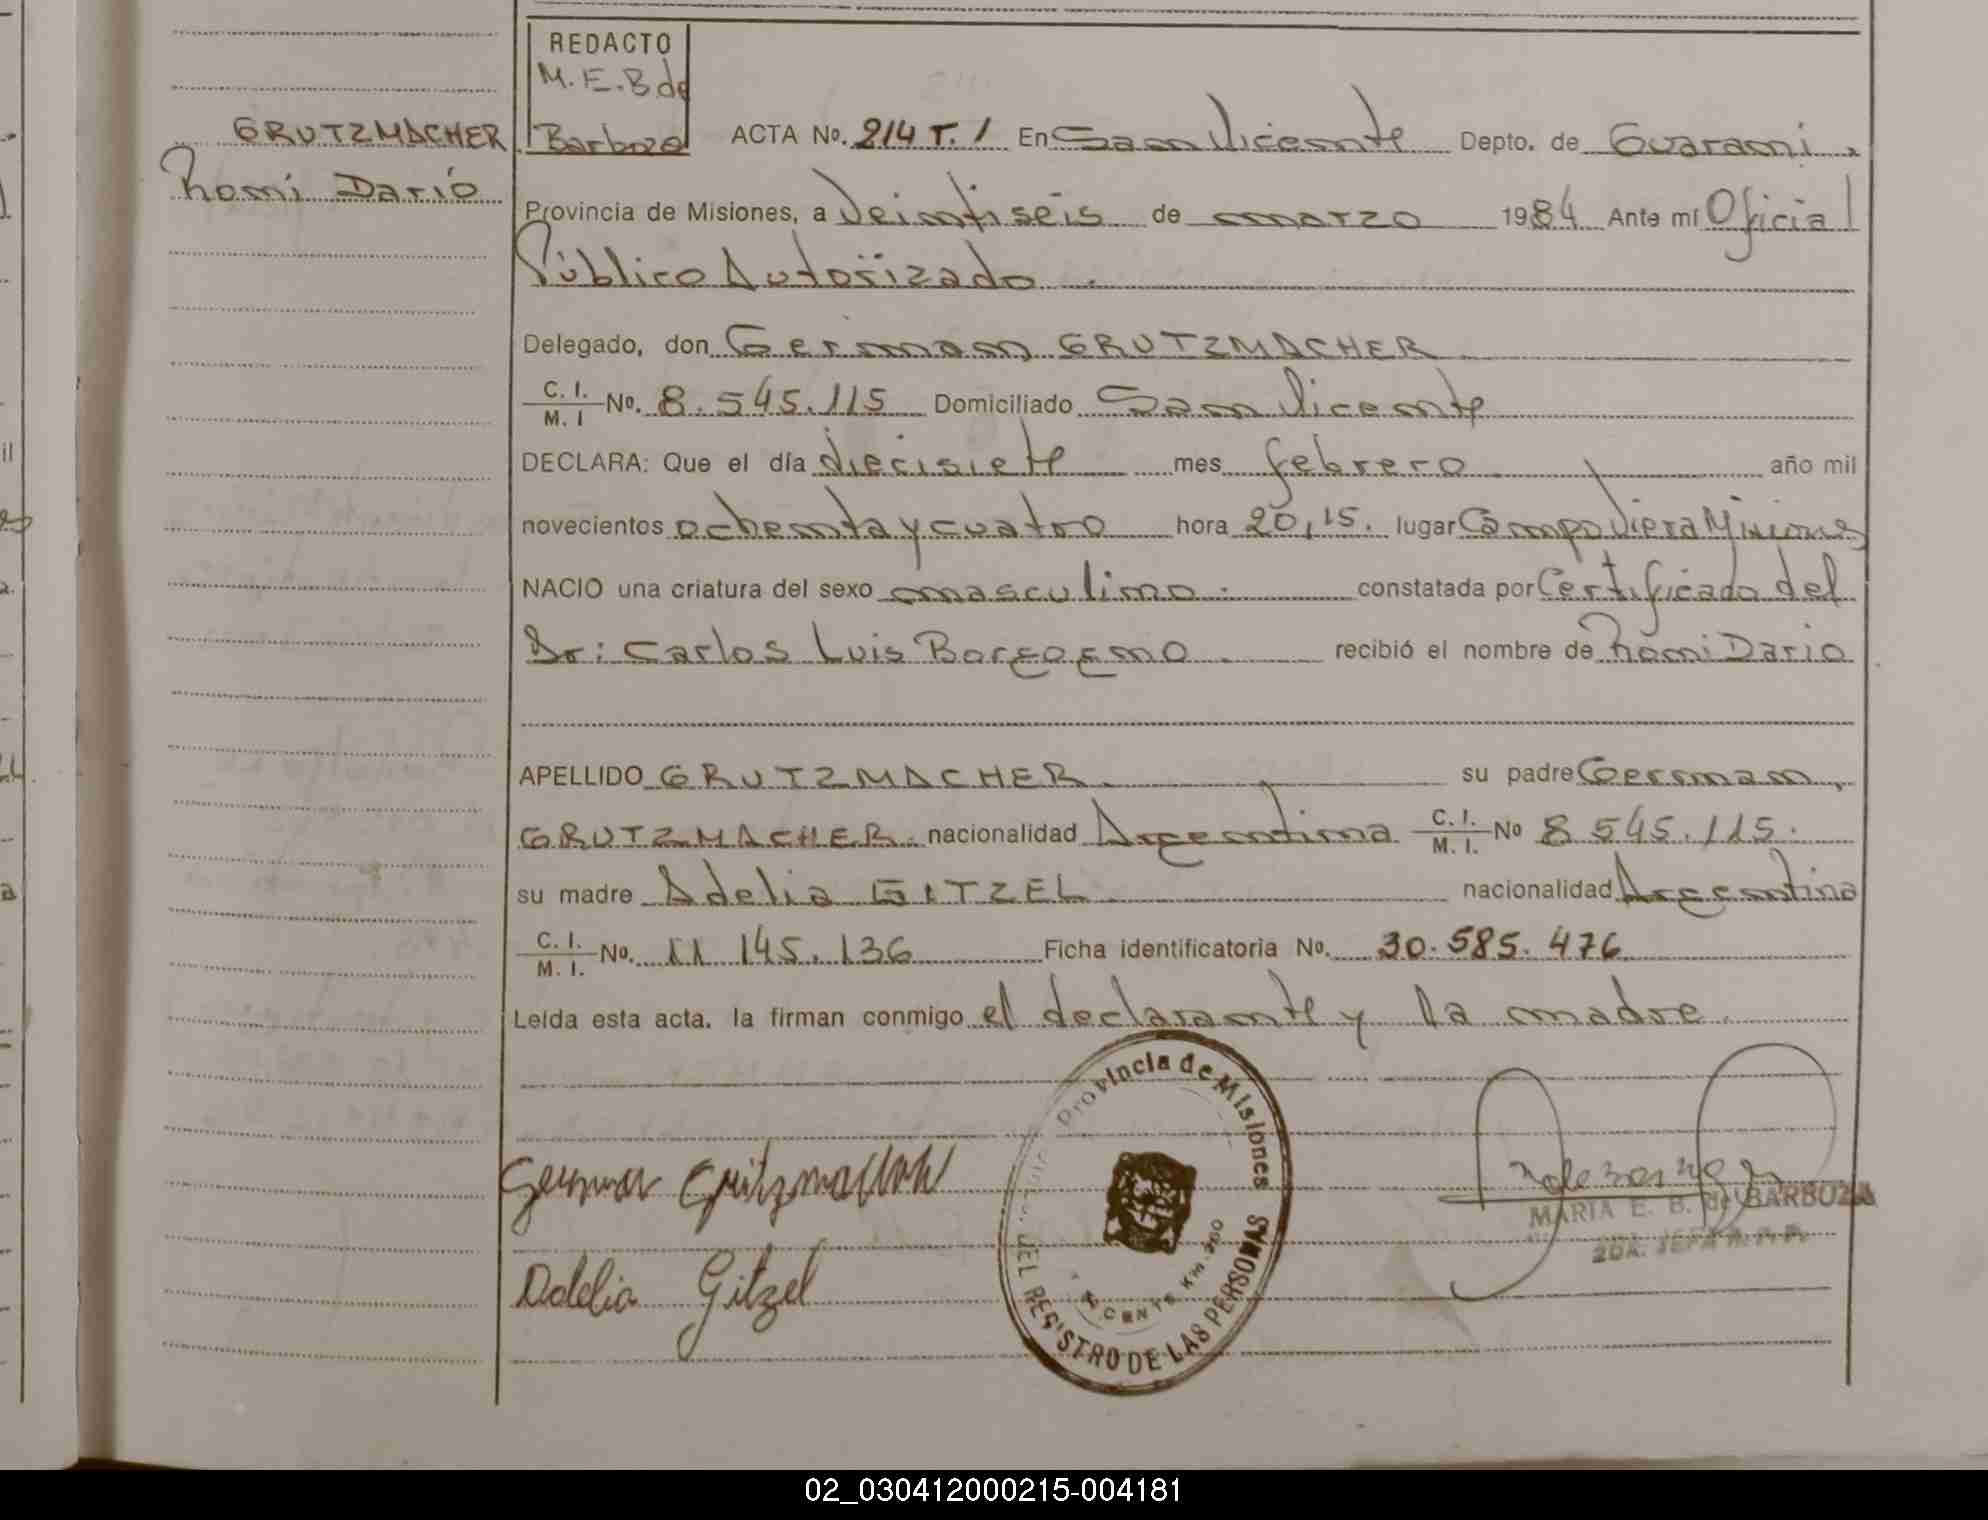 REDACTO
M.E.B de
GRUTZMACHER
Barboza ACTA No. 214 T.1 En San Vicente Depto. de Guarani.
Romi Dario
Provincia de Misiones, a Veintiseis de marzo 1984 Ante mí Oficial
Público Autorizado.
Delegado, don German GRUTZMACHER
C. I. / M. I No. 8.545.115 Domiciliado San Vicente
DECLARA: Que el día diecisiete mes febrero año mil
novecientos ochenta y cuatro hora 20,15. lugar Campo Viera Misiones
NACIO una criatura del sexo masculino. constatada por Certificado del
Dr: Carlos Luis Borgogno recibió el nombre de Romi Dario
APELLIDO GRUTZMACHER. su padre German,
GRUTZMACHER. nacionalidad Argentina C. I. / M. I. No 8.545.115.
su madre Adelia GITZEL. nacionalidad Argentina
C. I. / M. I. No. 11.145.136 Ficha identificatoria No. 30.585.476
Leída esta acta. la firman conmigo el declarante y la madre.
Provincia de Misiones
DEL REGISTRO DE LAS PERSONAS
German Grützmacher
MARIA E. B. de BARBOZA
2DA. JEFA
Adelia Gitzel
02_030412000215-004181